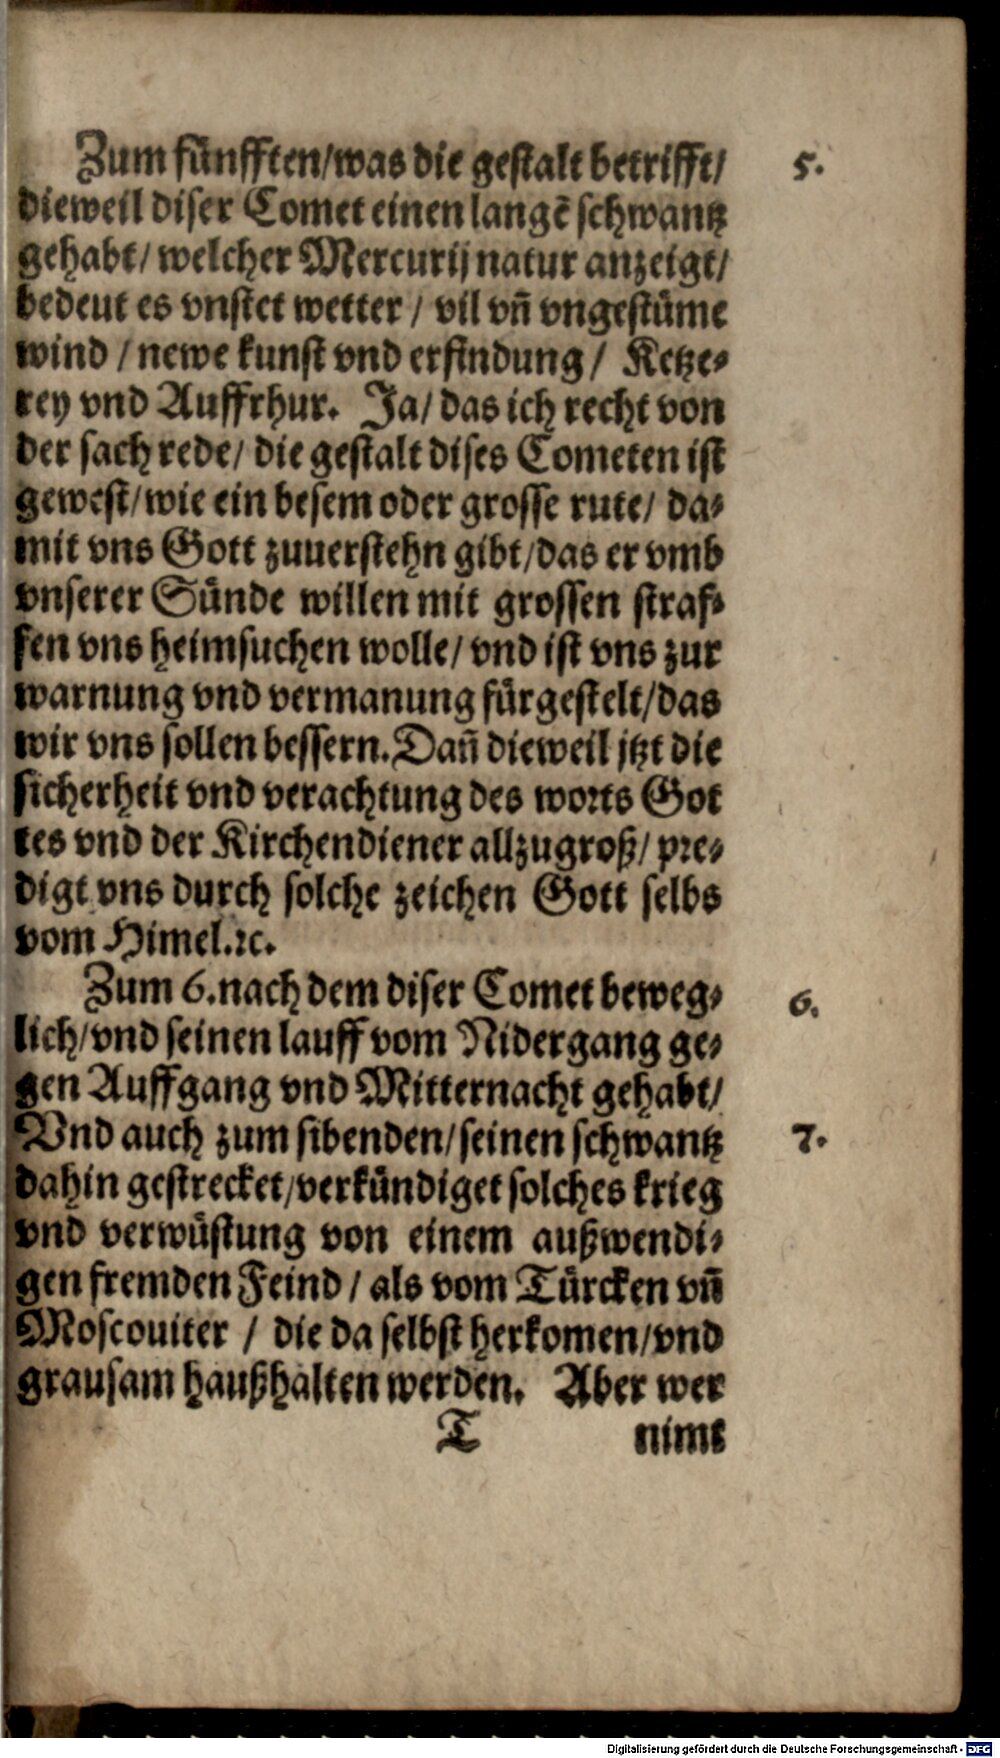 Zum fünfften/was die gestalt betrifft/ 5.
dieweil diser Comet einen langē schwantz
gehabt/ welcher Mercurij natur anzeigt/
bedeut es vnstet wetter / vil vn̄ vngestüme
wind / newe kunst vnd erfindung/ Ketze-
rey vnd Auffrhur. Ja/ das ich recht von
der sach rede/ die gestalt dises Cometen ist
gewest/wie ein besem oder grosse rute/ da-
mit vns Gott zuuerstehn gibt/das er vmb
vnserer Sünde willen mit grossen straf-
fen vns heimsuchen wolle/ vnd ist vns zur
warnung vnd vermanung fürgestelt/das
wir vns sollen bessern. Dan̄ dieweil jtzt die
sicherheit vnd verachtung des worts Got
tes vnd der Kirchendiener allzugroß/ pre-
digt vns durch solche zeichen Gott selbs
vom Himel.ꝛc.
Zum 6. nach dem diser Comet beweg- 6.
lich/vnd seinen lauff vom Nidergang ge-
gen Auffgang vnd Mitternacht gehabt/
Vnd auch zum sibenden/seinen schwantz 7.
dahin gestrecket/verkündiget solches krieg
vnd verwüstung von einem außwendi-
gen fremden Feind / als vom Türcken vn̄
Moscouiter / die da selbst herkomen/vnd
grausam haußhalten werden. Aber wer
T nimt
Digitalisierung gefördert durch die Deutsche Forschungsgemeinschaft - DFG